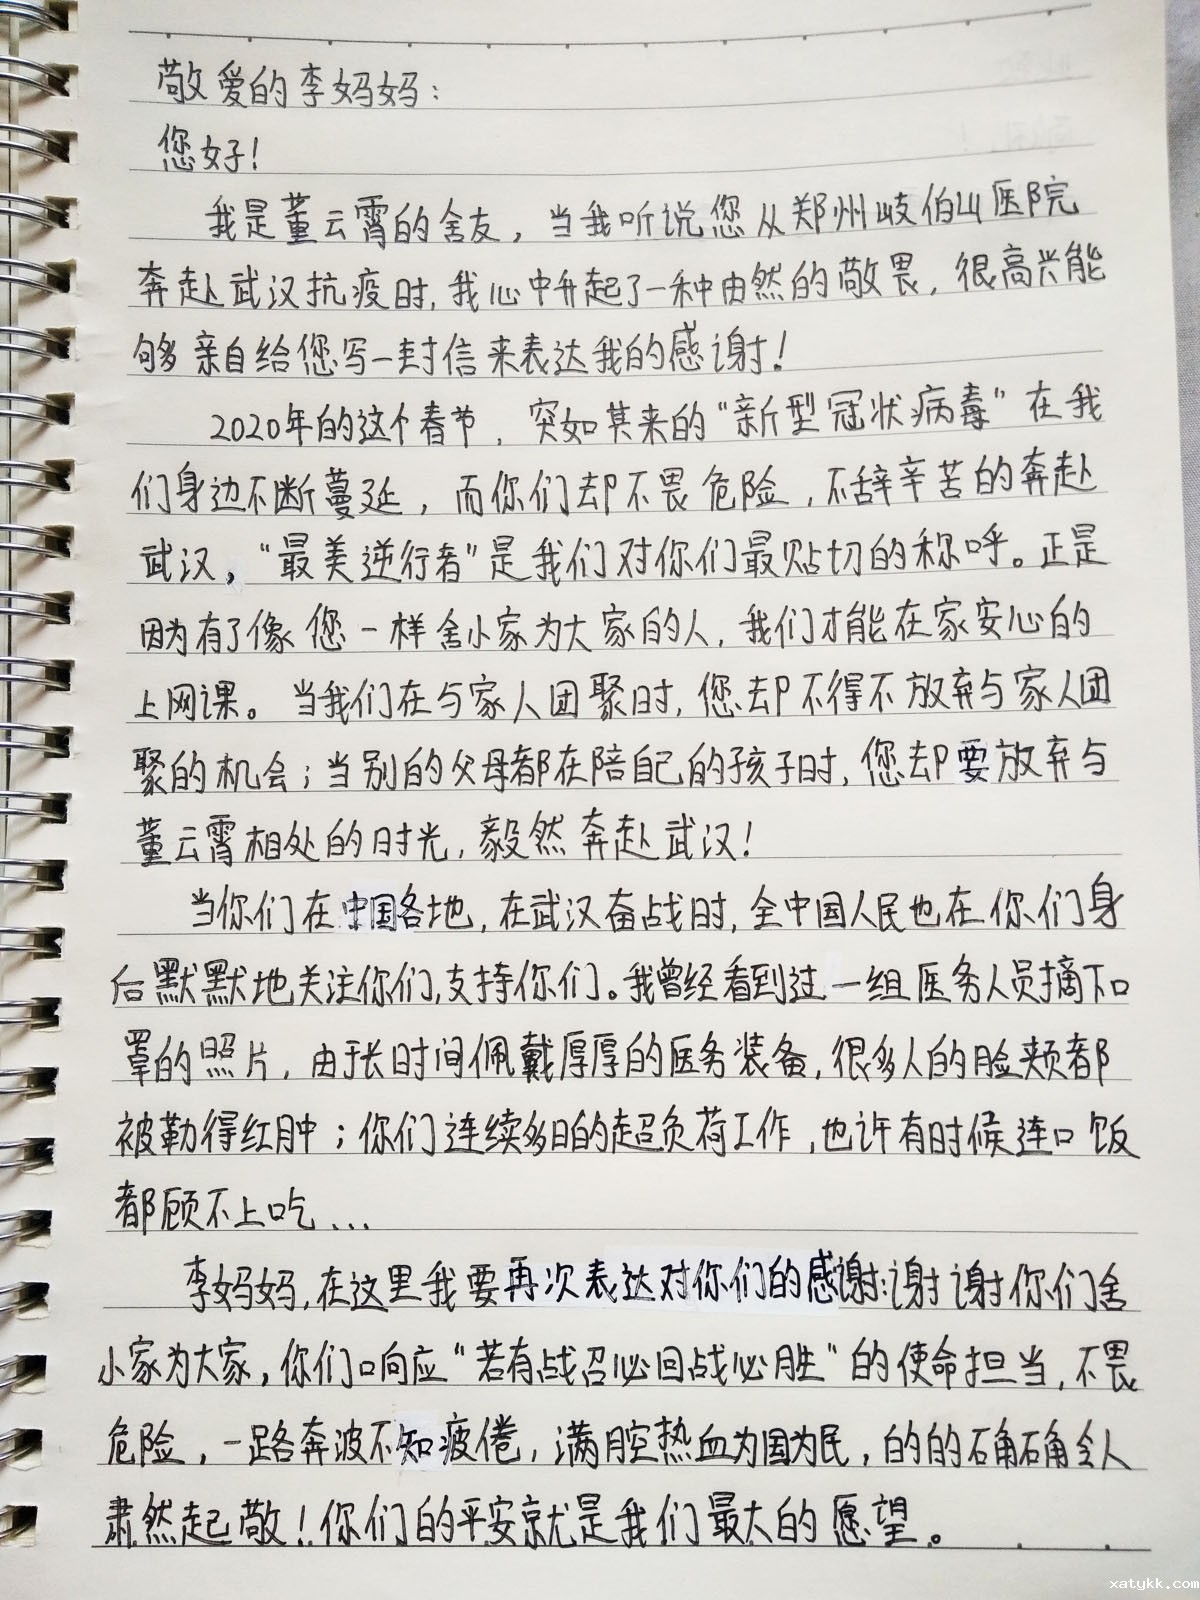 敬爱的李妈妈：
您好！
我是董云霄的舍友，当我听说您从郑州岐伯山医院
奔赴武汉抗疫时，我心中升起了一种由然的敬畏，很高兴能
够亲自给您写一封信来表达我的感谢！
2020年的这个春节，突如其来的“新型冠状病毒”在我
们身边不断蔓延，而你们却不畏危险，不辞辛苦的奔赴
武汉，“最美逆行者”是我们对你们最贴切的称呼。正是
因为有了像您一样舍小家为大家的人，我们才能在家安心的
上网课。当我们在与家人团聚时，您却不得不放弃与家人团
聚的机会；当别的父母都在陪自己的孩子时，您却要放弃与
董云霄相处的时光，毅然奔赴武汉！
当你们在中国各地，在武汉奋战时，全中国人民也在你们身
后默默地关注你们，支持你们。我曾经看到过一组医务人员摘下口
罩的照片，由于长时间佩戴厚厚的医务装备，很多人的脸颊都
被勒得红肿；你们连续多日的超负荷工作，也许有时候连口饭
都顾不上吃...
李妈妈，在这里我要再次表达对你们的感谢：谢谢你们舍
小家为大家，你们响应“若有战召必回战必胜”的使命担当，不畏
危险，一路奔波不知疲倦，满腔热血为国为民，的的确确令人
肃然起敬！你们的平安就是我们最大的愿望。
xatykk.com